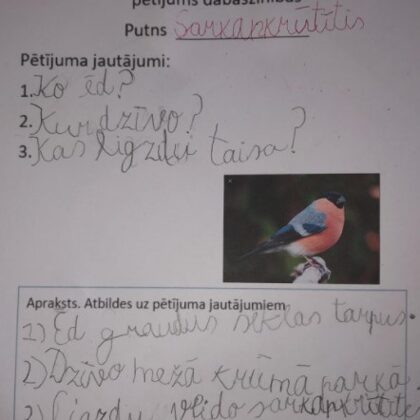 pētījums dabaszinības
Putns Sarkankrūtītis
Pētījuma jautājumi:
1. Ko ēd?
2. Kur dzīvo?
3. Kas ligzdu taisa?
Apraksts. Atbildes uz pētījuma jautājumiem
1) Ēd graudus sēklas tārpus.
2) Dzīvo mežā krūmā parkā
3) ligzdu veido